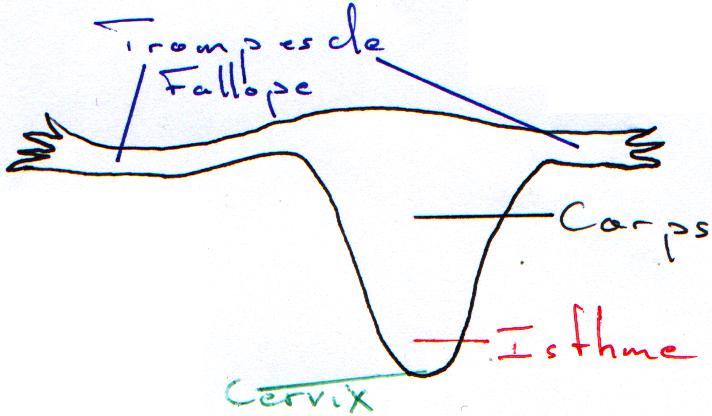 Trompes de
Fallope
Corps
Isthme
Cervix